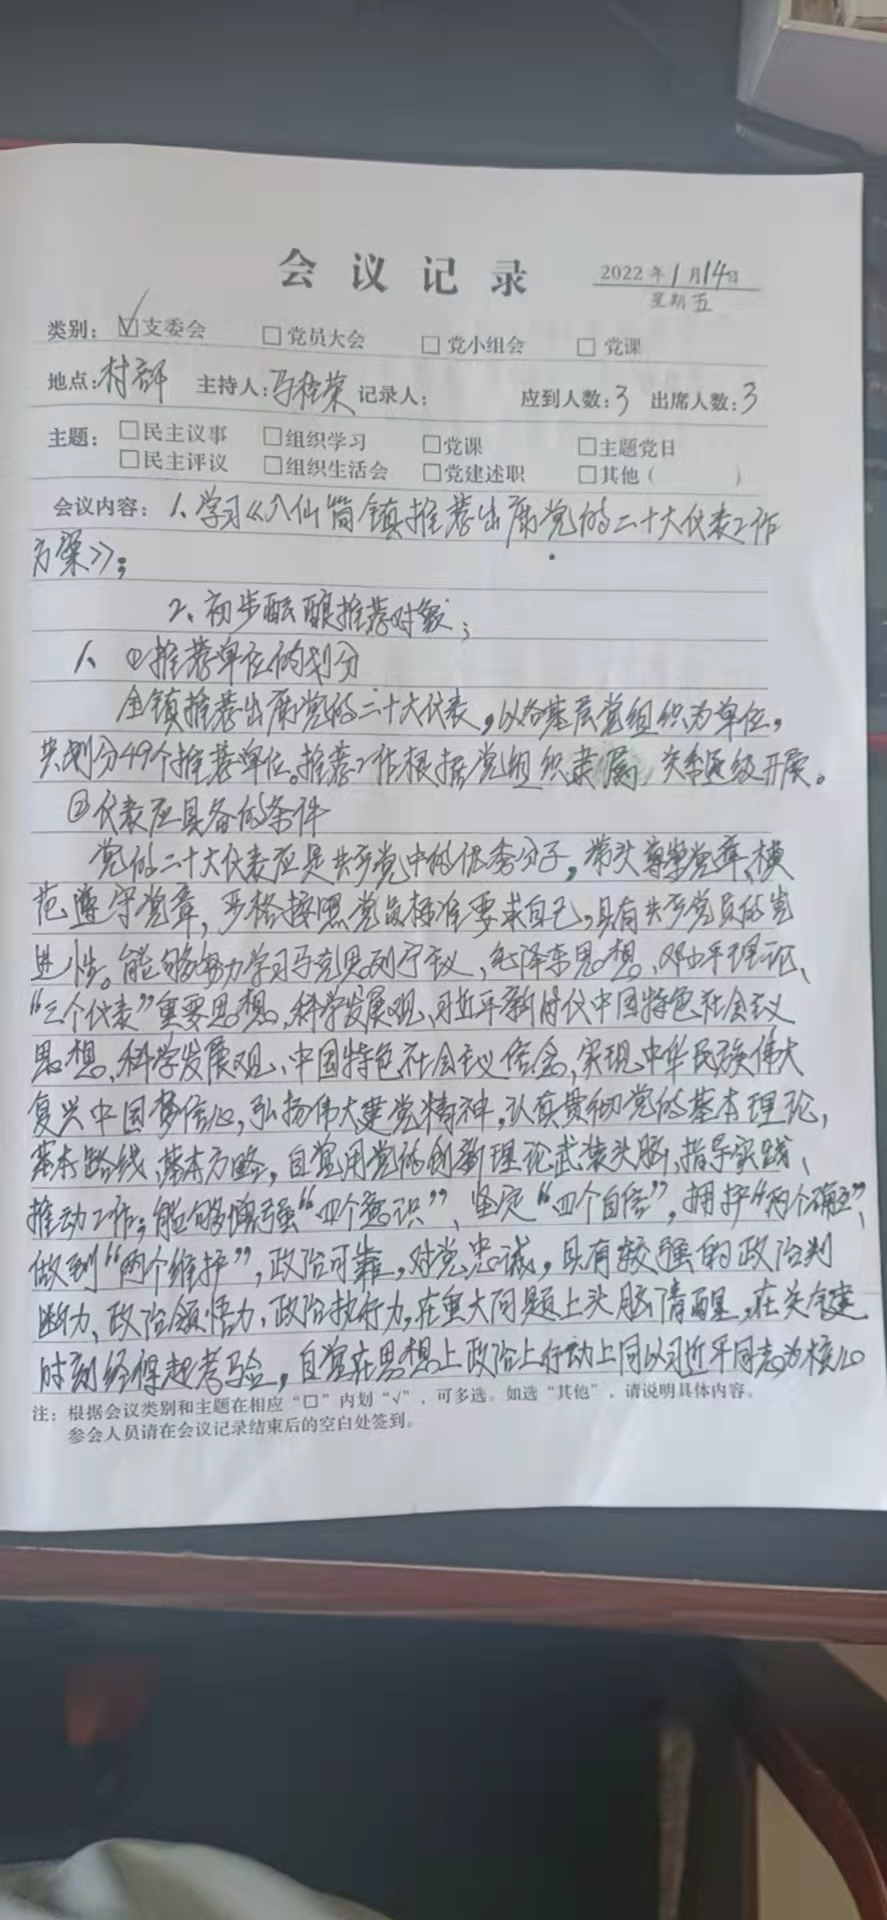 会议记录
2022年1月14日
星期五
类别：☑支委会 □党员大会 □党小组会 □党课
地点：村部 主持人：马桂荣 记录人： 应到人数：3 出席人数：3
主题：□民主议事 □组织学习 □党课 □主题党日
□民主评议 □组织生活会 □党建述职 □其他（ ）
会议内容：1、学习《八仙筒镇推荐出席党的二十大代表工作
方案》；
2、初步酝酿推荐对象；
1、①推荐单位的划分
全镇推荐出席党的二十大代表，以各基层党组织为单位，
共划分49个推荐单位。推荐工作根据党组织隶属 关系逐级开展。
②代表应具备的条件
党的二十大代表应是共产党中的优秀分子，带头尊崇党章、模
范遵守党章，严格按照党员标准要求自己，具有共产党员的先
进性。能够努力学习马克思列宁主义、毛泽东思想、邓小平理论、
“三个代表”重要思想、科学发展观、习近平新时代中国特色社会主义
思想、科学发展观、中国特色社会主义信念、实现中华民族伟大
复兴中国梦信心，弘扬伟大建党精神，认真贯彻党的基本理论，
基本路线、基本方略，自觉用党的创新理论武装头脑、指导实践、
推动工作；能够增强“四个意识”、坚定“四个自信”，拥护“两个确立”、
做到“两个维护”，政治可靠，对党忠诚，具有较强的政治判
断力、政治领悟力、政治执行力，在重大问题上头脑清醒，在关键
时刻经得起考验，自觉在思想上政治上行动上同以习近平同志为核心
注：根据会议类别和主题在相应“□”内划“√”，可多选。如选“其他”，请说明具体内容。
参会人员请在会议记录结束后的空白处签到。